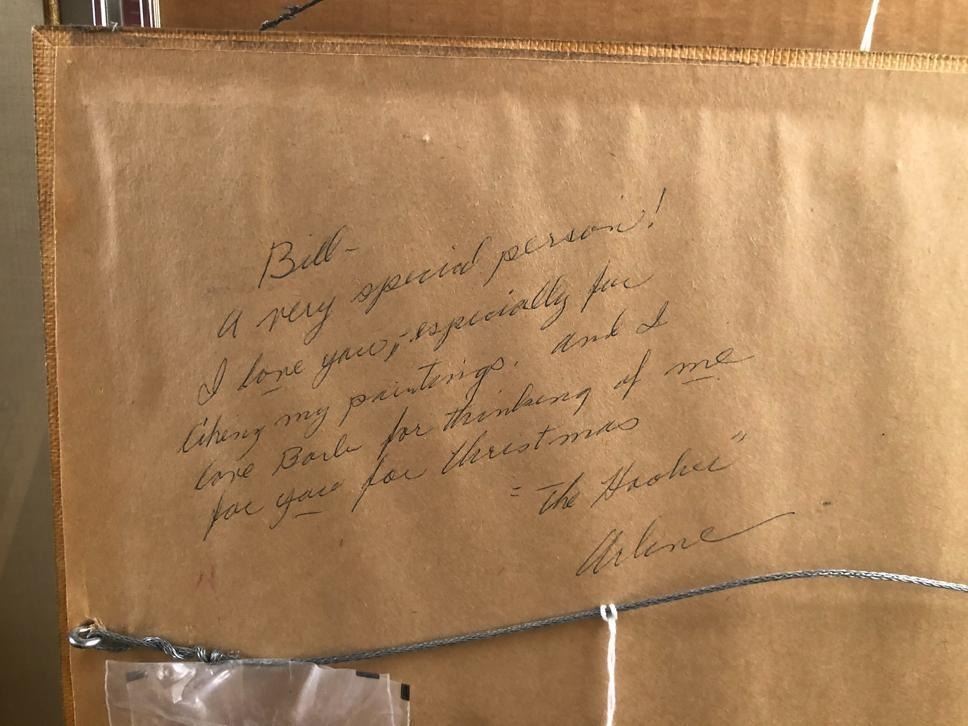 Bill-
A very special person!
I love you, especially for
liking my paintings. and I
love Barb for thinking of me
for you for Christmas
"The Hooker"
Arlene